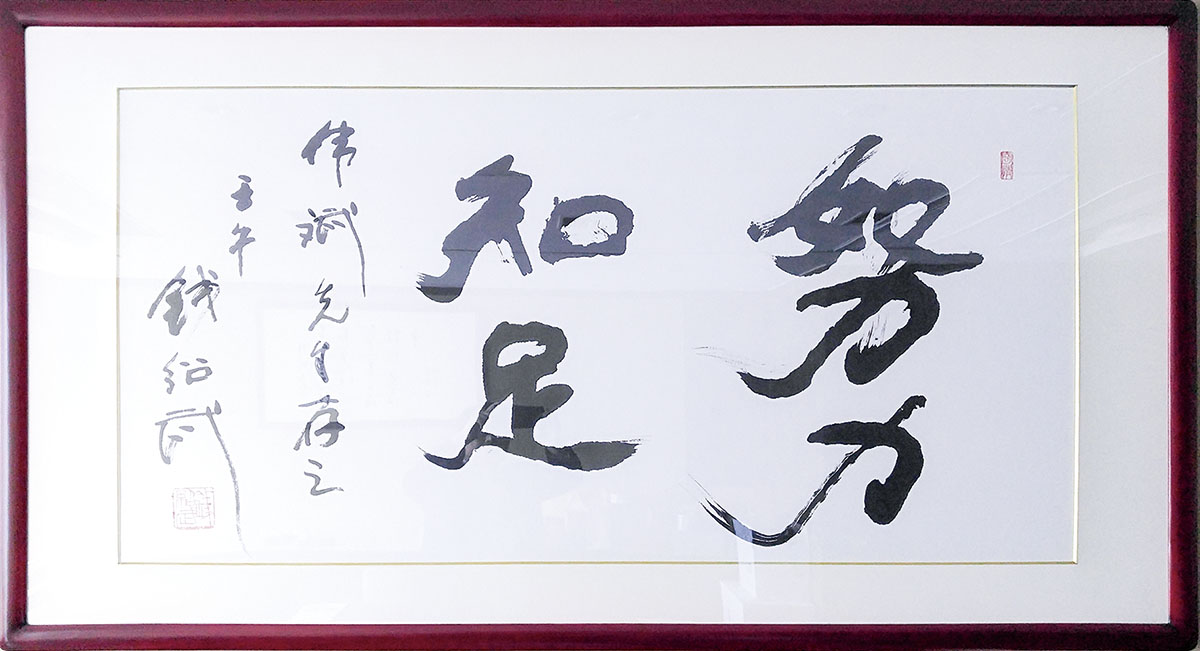 努力
知足
伟斌先生存之
壬午
钱绍武